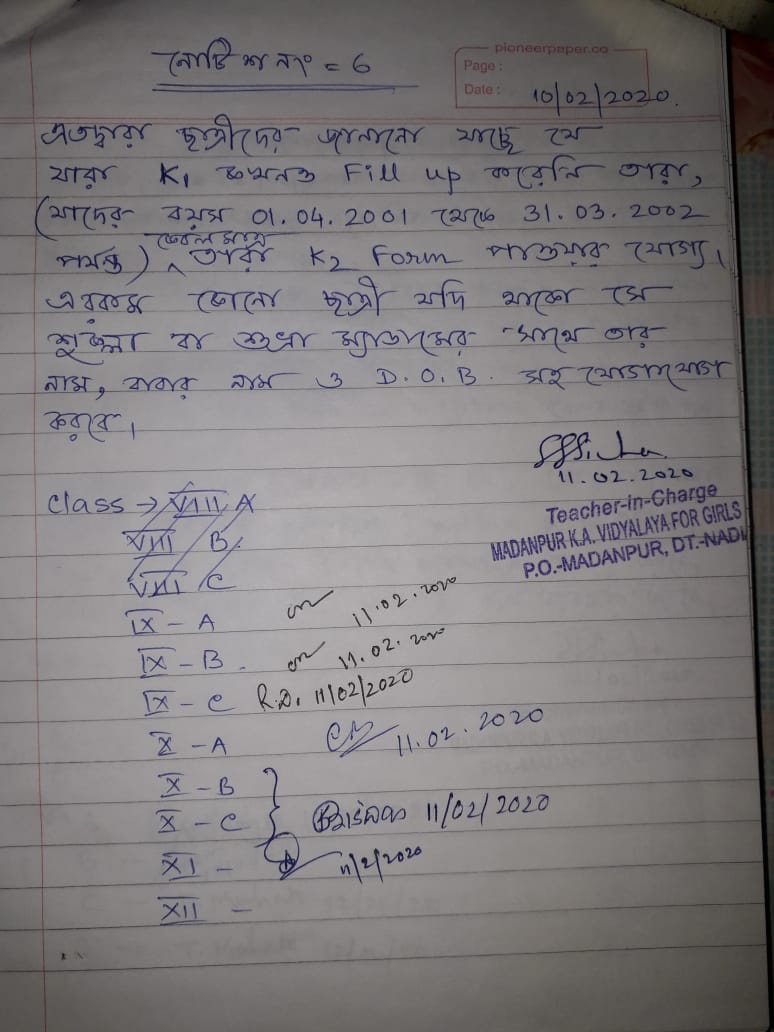 নোটিশ নং = 6
pioneerpaper.co
Page :
Date : 10/02/2020.
এতদ্বারা ছাত্রীদের জানানো যাচ্ছে যে
যারা K1 এখনও Fill up করেনি তারা,
(যাদের বয়স 01.04.2001 থেকে 31.03.2002
কেবলমাত্র
পর্যন্ত) ^ তারা K2 Form পাওয়ার যোগ্য।
এরকম কোনো ছাত্রী যদি থাকে সে
শুক্লা বা শুভ্রা ম্যাডামের সাথে তার
নাম, বাবার নাম ও D.O.B. সহ যোগাযোগ
করবে।
11.02.2020
Teacher-in-Charge
MADANPUR K.A. VIDYALAYA FOR GIRLS
P.O.-MADANPUR, DT.-NADI
Class → VIII A
VIII B
VIII C
IX - A 11.02.2020
IX - B - 11.02.2020
IX - C R.D. 11/02/2020
X - A 11.02.2020
X - B
X - C 11/02/2020
XI - 11/2/2020
XII -